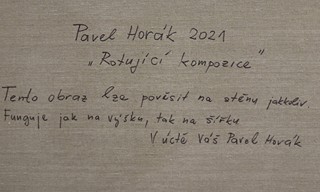 Pavel Horák 2021
„Rotující kompozice"
Tento obraz lze pověsit na stěnu jakkoliv.
Funguje jak na výšku, tak na šířku
V úctě Váš Pavel Horák